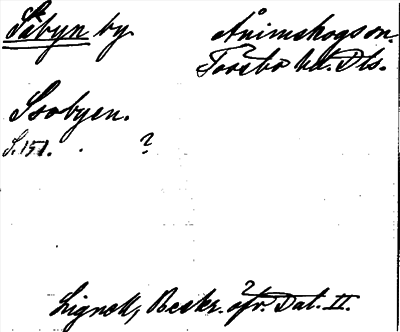 Såbyn by. Ånimskogs sn.
Tössbo hd. Dls.
Ssobyen.
S. 151. ?
Lignell, Beskr. öfr. Dal. II.